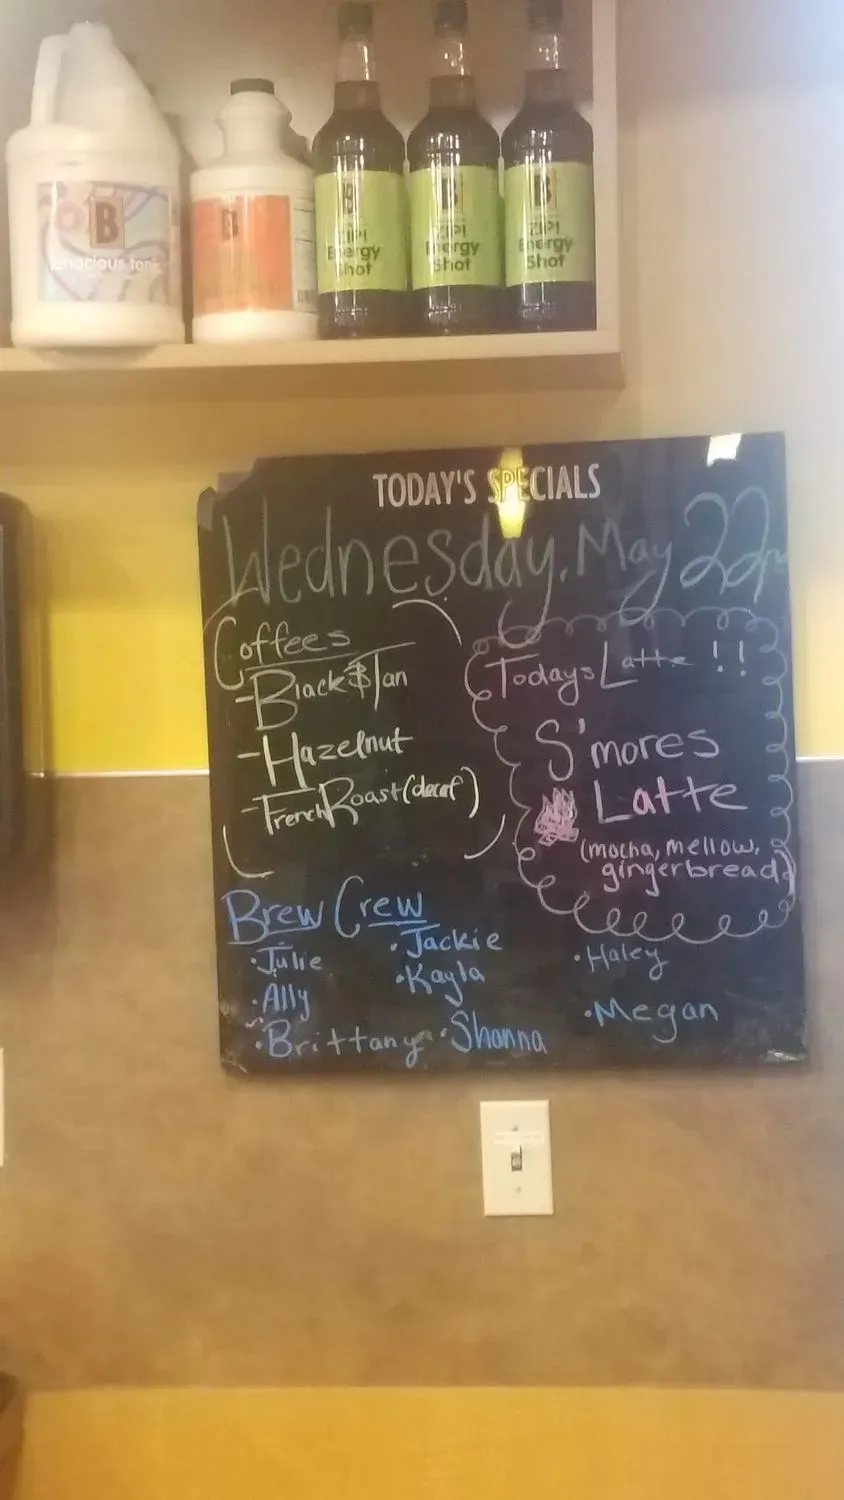 B
B
B
B
B
tenacious tonic
ZIP!
Energy
Shot
ZIP!
Energy
Shot
ZIP!
Energy
Shot
TODAY'S SPECIALS
Wednesday, May 22nd
Coffees
- Black & Tan
- Hazelnut
- French Roast (decaf)
Todays Latte !!
S'mores
Latte
(mocha, mellow,
gingerbread)
Brew Crew
· Julie
· Ally
· Brittany
· Jackie
· Kayla
· Shanna
· Haley
· Megan